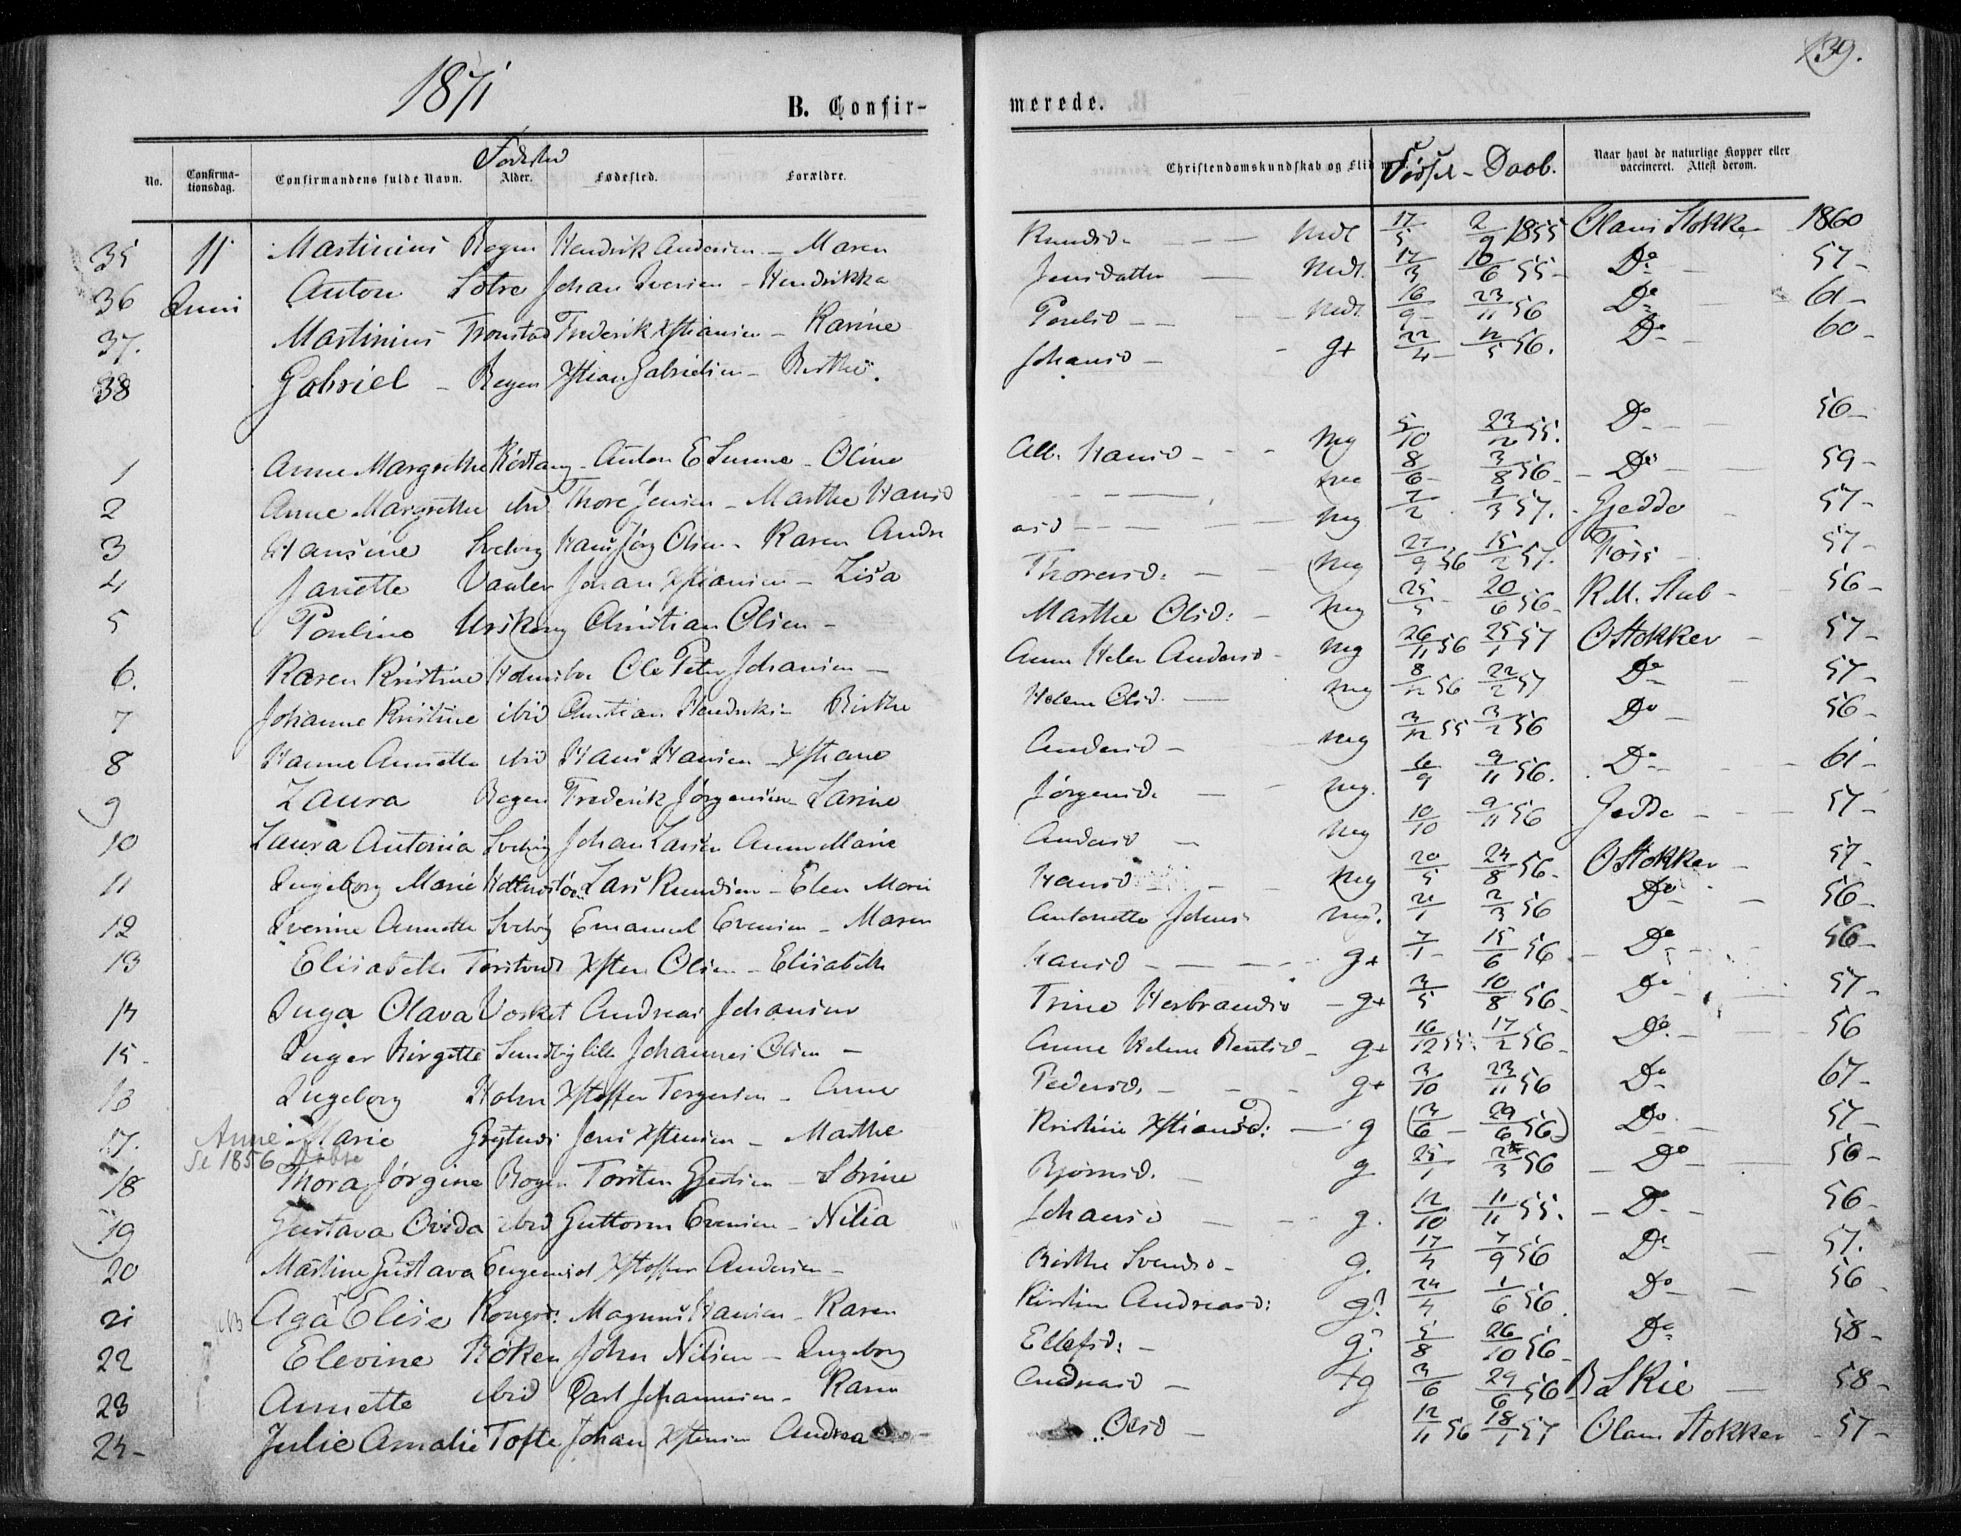 1871
139.
B. Confir-
merede.
Fødested
No. Confirmationsdag. Confirmandens fulde Navn. Alder. Fødested. Forældre. Christendomskundskab og Flid Fødsel - Daab. Naar havt de naturlige Kopper eller vaccineret. Attest derom.
35 11 Martinius Bogen Hendrik Andersen - Maren Knudsd. - - - Mdt 17/5 2/9 1855 Olaus Stokker 1860
36 Juni Anton Sotre Johan Iversen - Hendrikka Jensdatter - Mdt. 17/3 10/6 55 - Do - 57 -
37. Martinius Tronstad Frederik Xstiansen - Karine - - Mdt. 16/9 - 23/11 56 Do - 61 -
38 Gabriel - Bogen Xstian Gabrielsen - Berthe Johansd - - g+ 22/4 - 12/5 56. Do - 60 -
1 Anne Margrethe Anton E - Oline All. Hansd - - - Mg 5/10 23/12 55. Do - - 56 -
2 Anne Margrethe ibid Thore Jensen - Marthe Hansd - - - - 8/6 - 3/8 56 - Do - 59 -
3 Hansine Svelvig Hans Jørg Olsen - Karen Andre asd - - - Mg 7/2 1/3 57. Gjedde - 57 -
4 Janette Johan Xstiansen - Lisa Thoresd. - - Mg 27/9 56 15/2 57. - 57 -
5 Pauline Christian Olsen - Marthe Olsd: - Mg 25/5 - 20/6 56 - R.M. Stub - 56 -
6. Karen Kristine Holmsbo Ole Peter Johansen - Anne Helen Andersd - Mg 26/11 56 25/1 57 O Stokker - 57 -
7 Johanne Kristine ibid Christian Hendriksen Birthe Helene Olsd. - Mg 8/12 56 22/2 57 Do - 57 -
8 Hanne Annette ibid Hans Hansen - Xstiane Andersd - Mg 3/12 55 3/2 56 Do - 56 -
9 Laura Bogen Frederik Jørgensen - Larine Jørgensd. - - Mg. 6/9 9/11 56. Do - - 61 -
10 Laura Antonia Svelvig Johan Larsen Anne Marie Andersd - Mg 10/10 9/11 56 Gjedde - - 57 -
11 Ingeborg Marie Lars Knudsen - Elen Marie Hansd - - Mg 20/5 24/8 56 - O Stokker - 57 -
12 Iverine Annette Svelvig Emanuel Evensen - Maren Antonette Johns Mg. 21/1 2/3 56 Do - 56 -
13 Elisabeth Xsten Olsen - Elisabeth Hansd - - - - g+ 7/1 - 15/6 56 - Do - 56 -
14 Inga Olava Andreas Johansen Trine Herbrandsd - g+ 3/5 10/8 56 - Do - 57 -
15 - Inger Birgitte Sundby lille Johannes Olsen - Anne Helene Bentsd - g+ 16/12 55. 17/2 56 - Do - 56
16 Ingeborg Holm Xstoffer Torgersen - Anne Pedersd. - - - g+ 3/10 23/11 56 Do - 67 -
17. Anne Marie Jens Xstensen - Marthe Kristine Xstiansd: - g (3/6 - 29/6 56) Do - 57 -
Se 1856 Døbte
18 Thora Jørgine Bogen Torsten - Sörine Bjørnsd. - g 25/1 24/3 56 - Do - 56 -
19 Gustava Ovida ibid Guttorm Evensen - Nilia Johansd - - g. 12/10 11/11 55. - Do - 56 -
20 Martine Gustava Xstoffer Andersen - Birthe Svendsd - g. 17/4 7/9 56 Do - 57.
21 Agar Elise Kongsd: Magnus Hansen - Karen Kirstine Andreasd: g? 24/4 1/6 56. Do - 56 -
22 Elevine Röken John Nilsen - Ingeborg Ellefsd: - g? 5/8 26/10 56 - Do - 58 -
23 Annette ibid Carl Johannesen - Karen Andreasd - +g 3/6 29/6 56 B Skie - 58 -
24 - Julie Amalie Tofte Johan Xstensen Andrea Olsd - 12/11 56 18/1 57 Olaus Stokker - 57 -